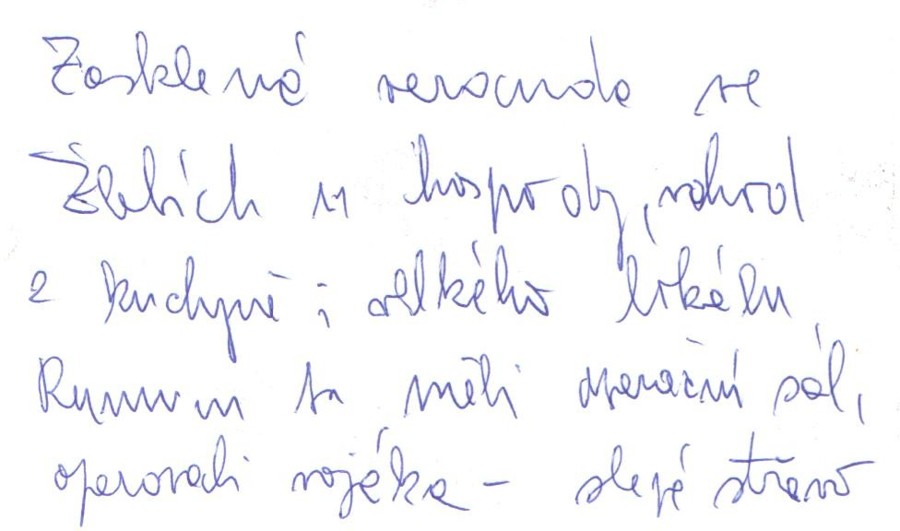 Zasklená veranda ve
Žlebích u hospody, vchod
z kuchyně i velkého lokálu,
Rumuni tu měli operační sál,
operovali vojáka - slepé střevo